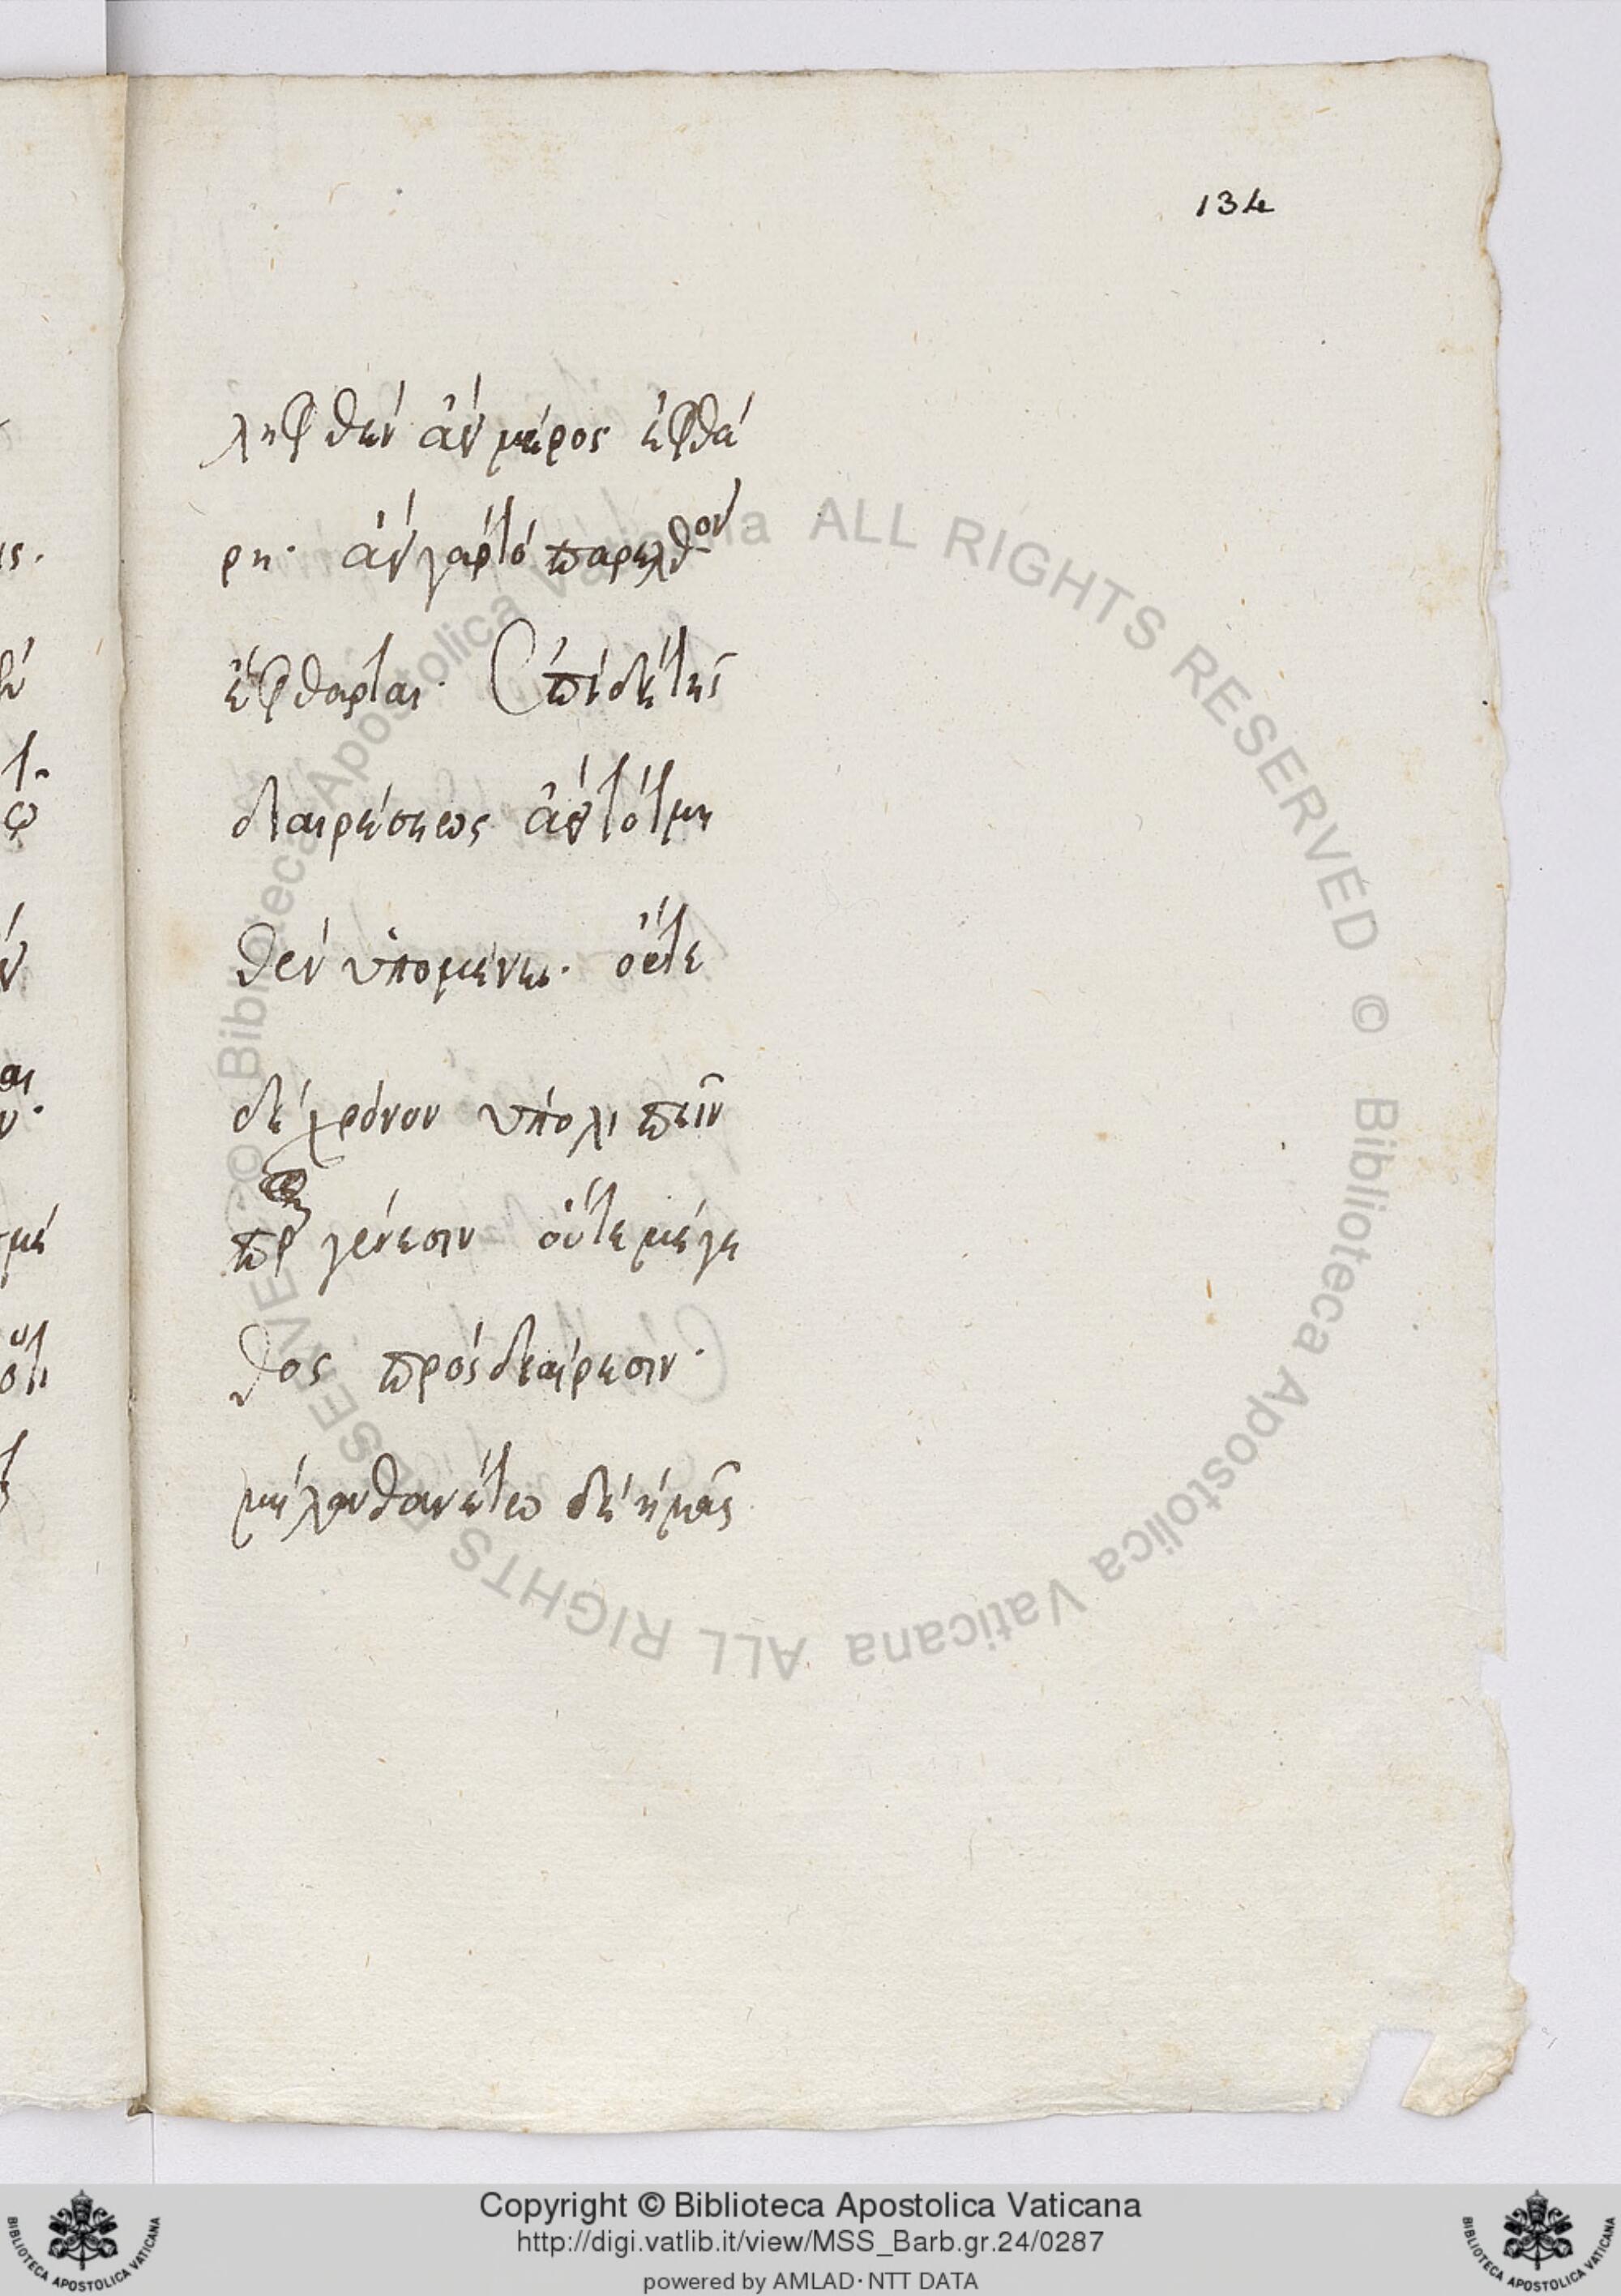 134
ληφθὲν ἂν μέρος ἐφθά
ρη· ἂν γὰρ τὸ παρελθὸν
ἔφθαρται. Ἐπὶ δὲ τῆς
διαιρέσεως ἂν τὸ τμη
θὲν ὑπομένει· οὔτε
δὲ χρόνον ὑπολιπεῖν
πρ γένεσιν οὔτε μέγε
θος πρὸς διαίρεσιν·
μὴ λανθανέτω δὲ ἡμᾶς
Copyright © Biblioteca Apostolica Vaticana
http://digi.vatlib.it/view/MSS_Barb.gr.24/0287
powered by AMLAD·NTT DATA
© Biblioteca Apostolica Vaticana ALL RIGHTS RESERVED © Biblioteca Apostolica Vaticana ALL RIGHTS RESERVED
BIBLIOTECA APOSTOLICA VATICANA
BIBLIOTECA APOSTOLICA VATICANA